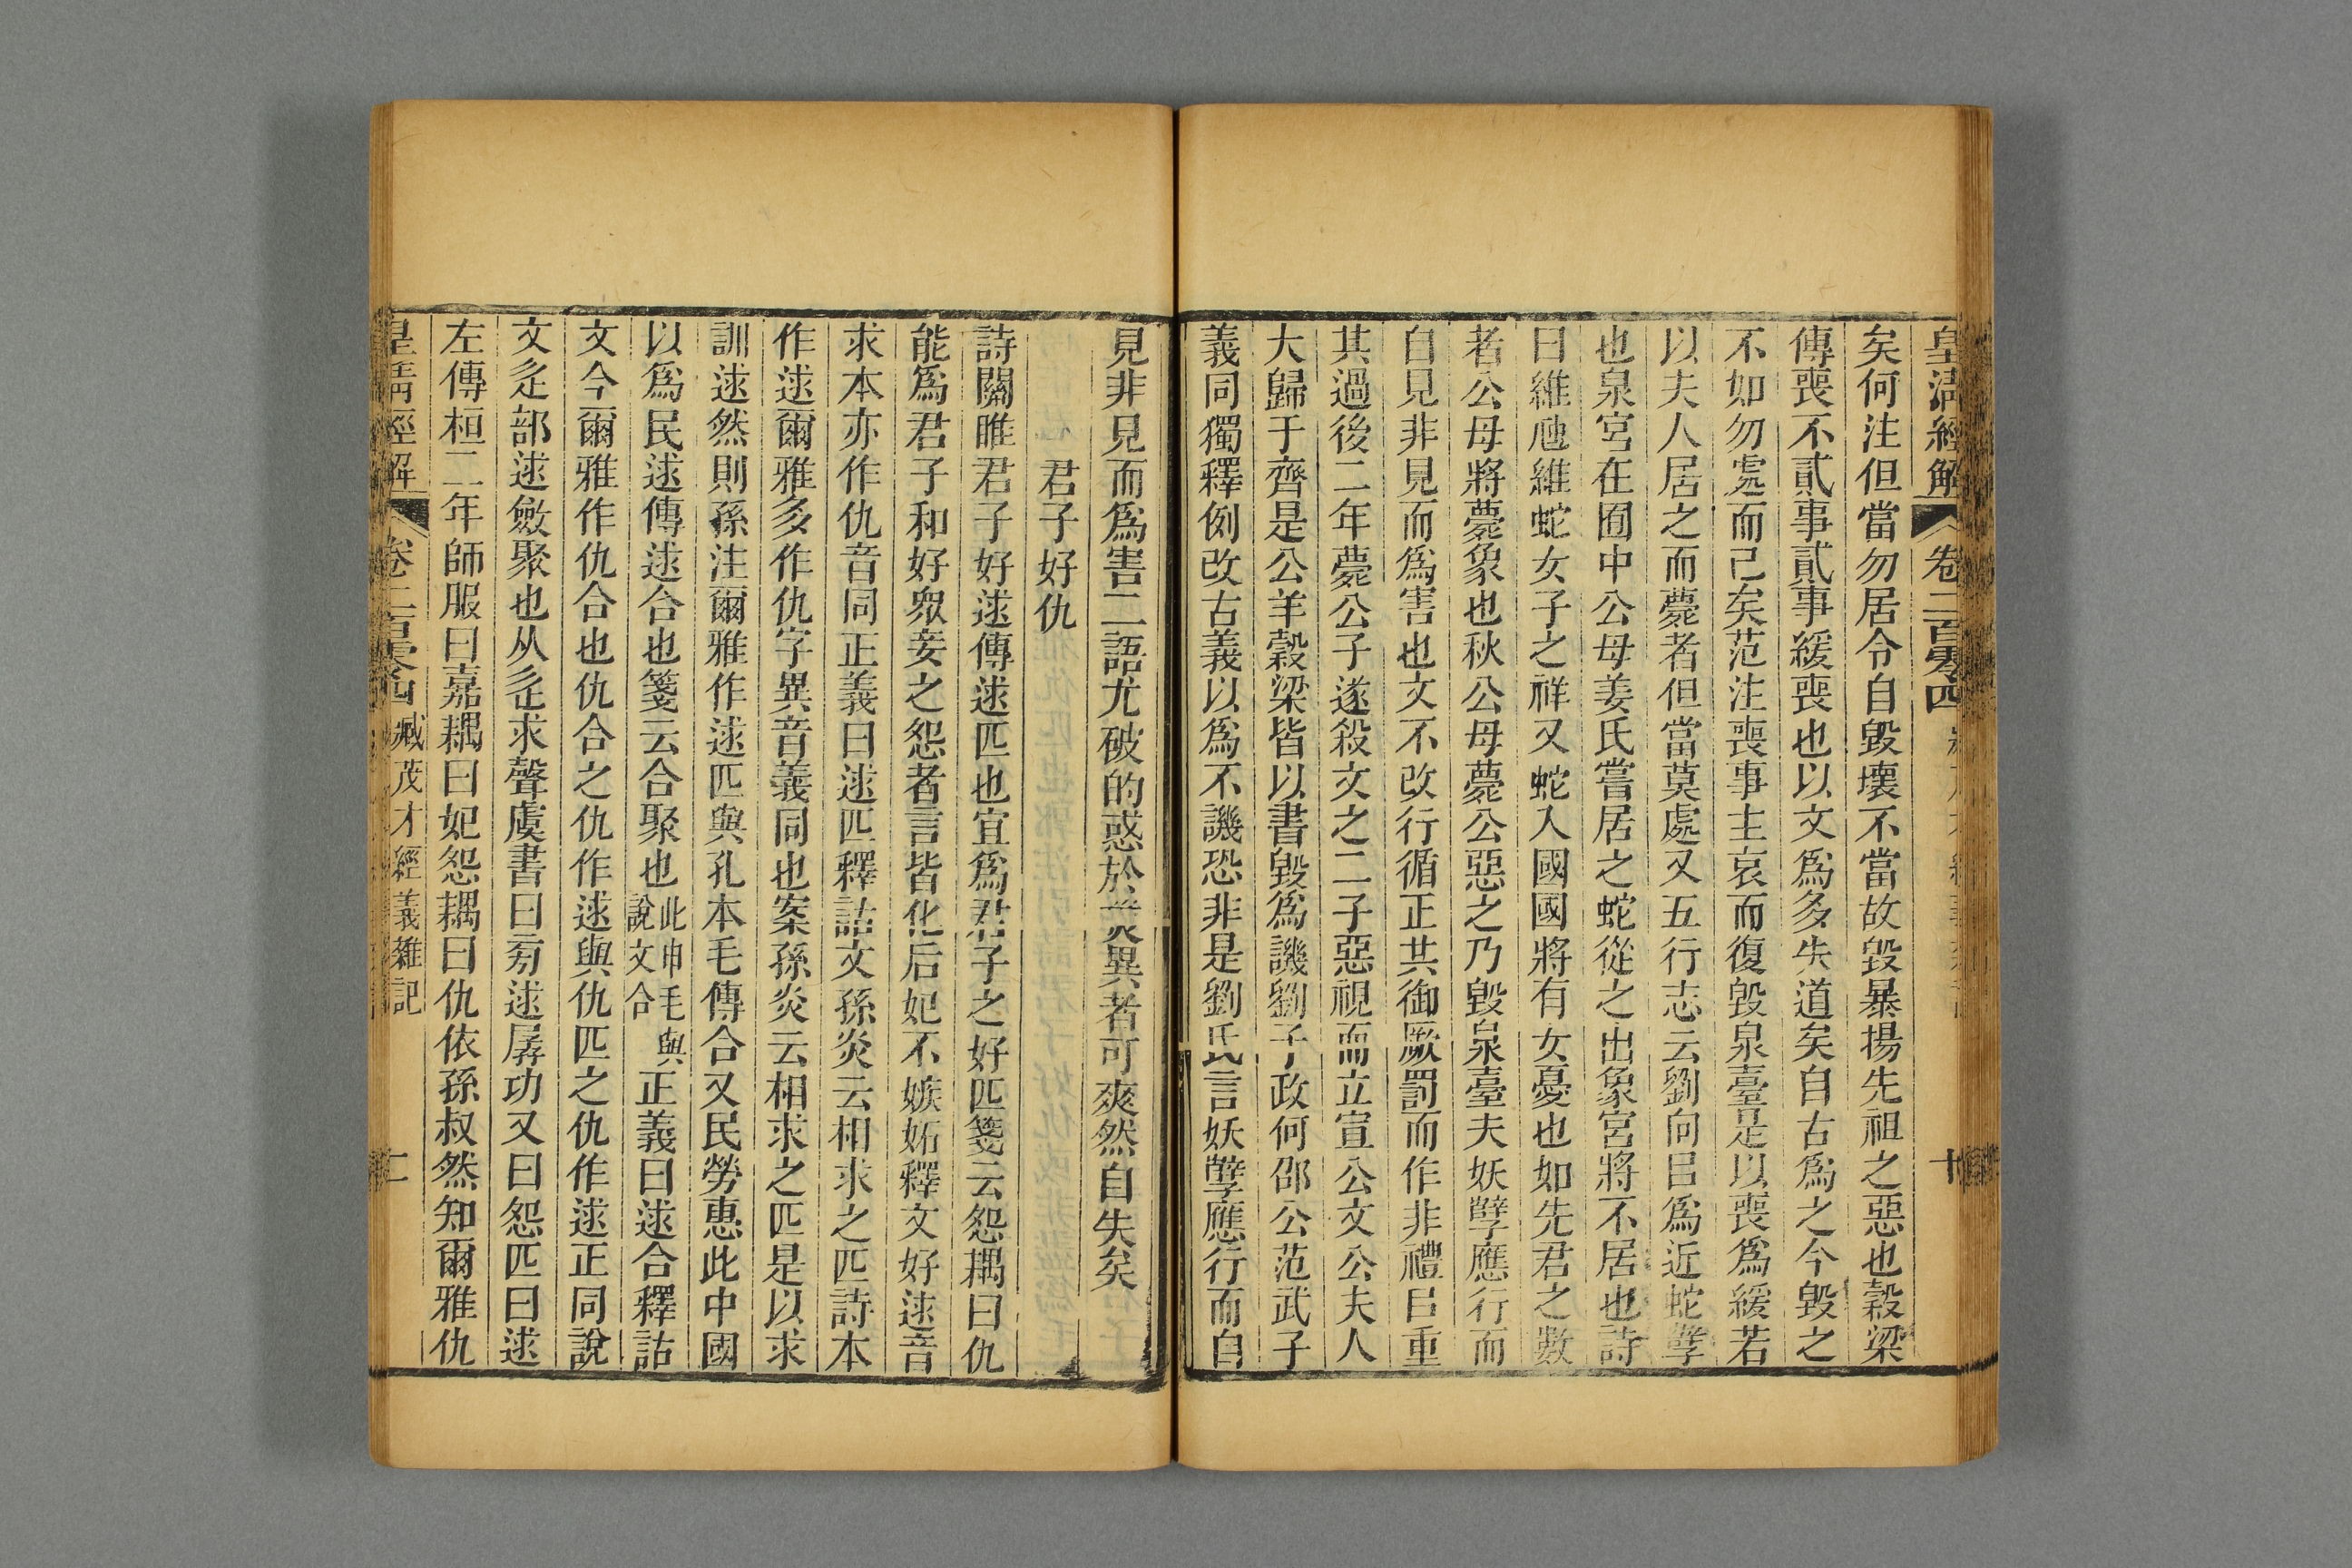 皇清經解 卷二百零四 十
矣何注但當勿居令自毀壞不當故毀暴揚先祖之惡也穀梁
傳喪不貳事貳事緩喪也以文爲多失道矣自古爲之今毀之
不如勿處而已矣范注喪事主哀而復毀泉臺是以喪爲緩若
以夫人居之而薨者但當莫處又五行志云劉向㠯爲近蛇孽
也泉宮在囿中公母姜氏嘗居之蛇從之出象宮將不居也詩
曰維虺維蛇女子之祥又蛇入國國將有女憂也如先君之數
者公母將薨象也秋公母薨公惡之乃毀泉臺夫妖孽應行而
自見非見而爲害也文不改行循正共御厥罰而作非禮㠯重
其過後二年薨公子遂殺文之二子惡視而立宣公文公夫人
大歸于齊是公羊穀梁皆以書毀爲譏劉子政何邵公范武子
義同獨釋例改古義以爲不譏恐非是劉氏言妖孽應行而自
見非見而爲害二語尤破的惑於災異者可爽然自失矣
君子好仇
詩關雎君子好逑傳逑匹也宜爲君子之好匹箋云怨耦曰仇
能爲君子和好衆妾之怨者言皆化后妃不嫉妬釋文好逑音
求本亦作仇音同正義曰逑匹釋詁文孫炎云相求之匹詩本
作逑爾雅多作仇字異音義同也案孫炎云相求之匹是以求
訓逑然則孫注爾雅作逑匹與孔本毛傳合又民勞惠此中國
以爲民逑傳逑合也箋云合聚也此申毛與說文合正義曰逑合釋詁
文今爾雅作仇合也仇合之仇作逑與仇匹之仇作逑正同說
文辵部逑斂聚也从辵求聲虞書曰㫄逑孱功又曰怨匹曰逑
左傳桓二年師服曰嘉耦曰妃怨耦曰仇依孫叔然知爾雅仇
皇清經解 卷二百零四 臧茂才經義雜記